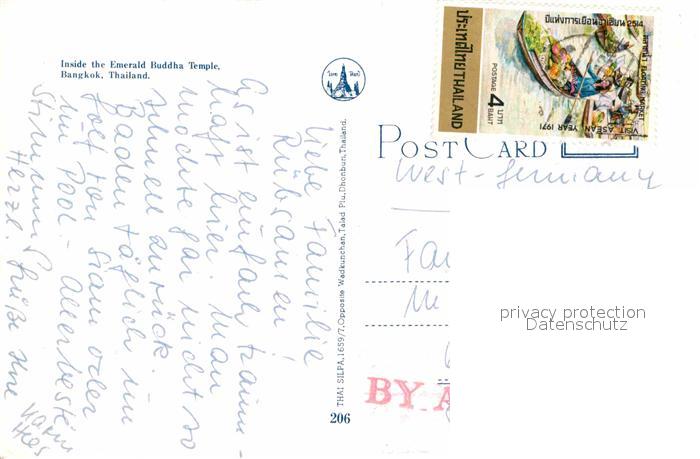 Inside the Emerald Buddha Temple,
Bangkok, Thailand.
Liebe Familie
Rübsamen!
Es ist einfach traum-
haft hier. Man
möchte gar nicht so
schnell zurück.
Baden täglich im
Golf von Siam oder
im Pool. - Allerbeste
Stimmung
Herzl. Grüße Ihre
THAI SILPA, 1659/7, Opposite Wadkunchan, Talad Plu, Dhonburi, Thailand.
206
ปีแห่งการเยือนอาเซียน 2514
ประเทศไทย THAILAND
POSTAGE 4 บาท BAHT
ตลาดน้ำ FLOATING MARKET
VISIT ASEAN YEAR 1971
POST CARD
West-Germany
Fa
BY A
privacy protection
Datenschutz